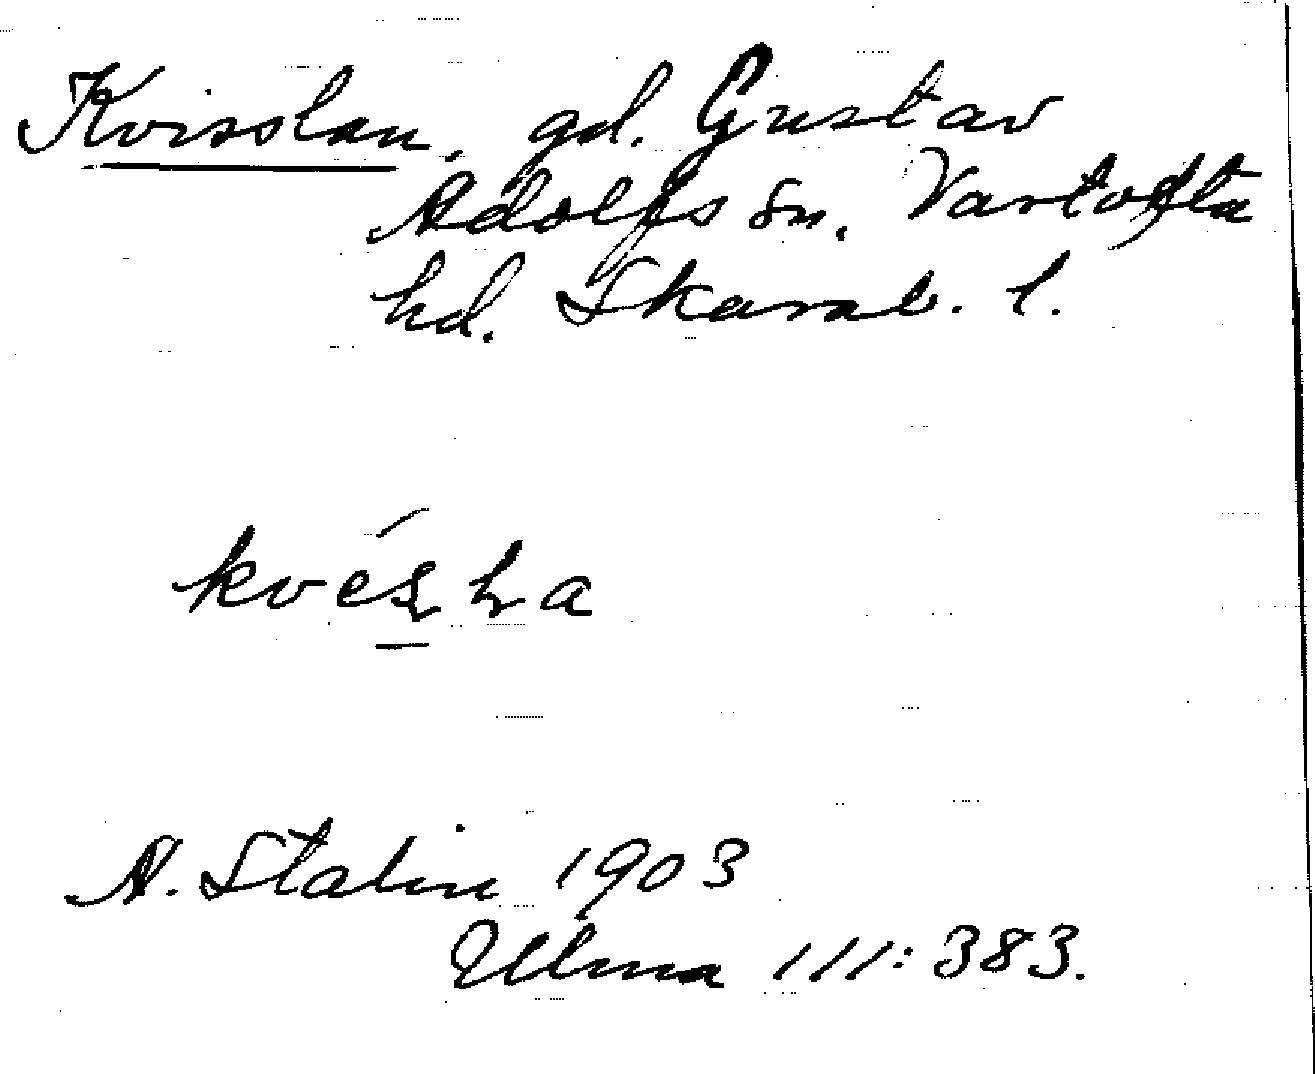 Kvisslan, gd. Gustav
Adolfs sn, Vartofta
hd. Skarab. l.
A. Stalin 1903
Ulma 111:383.